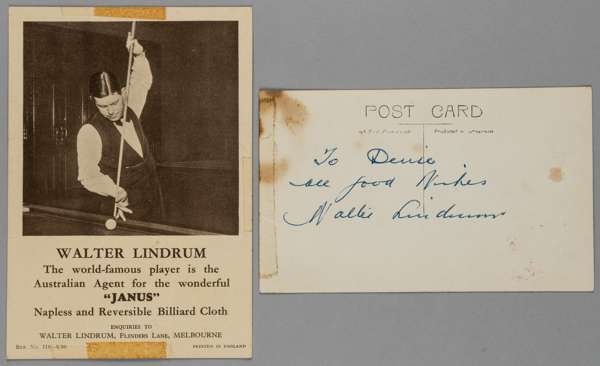 WALTER LINDRUM
The world-famous player is the
Australian Agent for the wonderful
"JANUS"
Napless and Reversible Billiard Cloth
ENQUIRIES TO
WALTER LINDRUM, FLINDERS LANE, MELBOURNE
PRINTED IN ENGLAND
POST CARD
To Denise
all good Wishes
Walter Lindrum